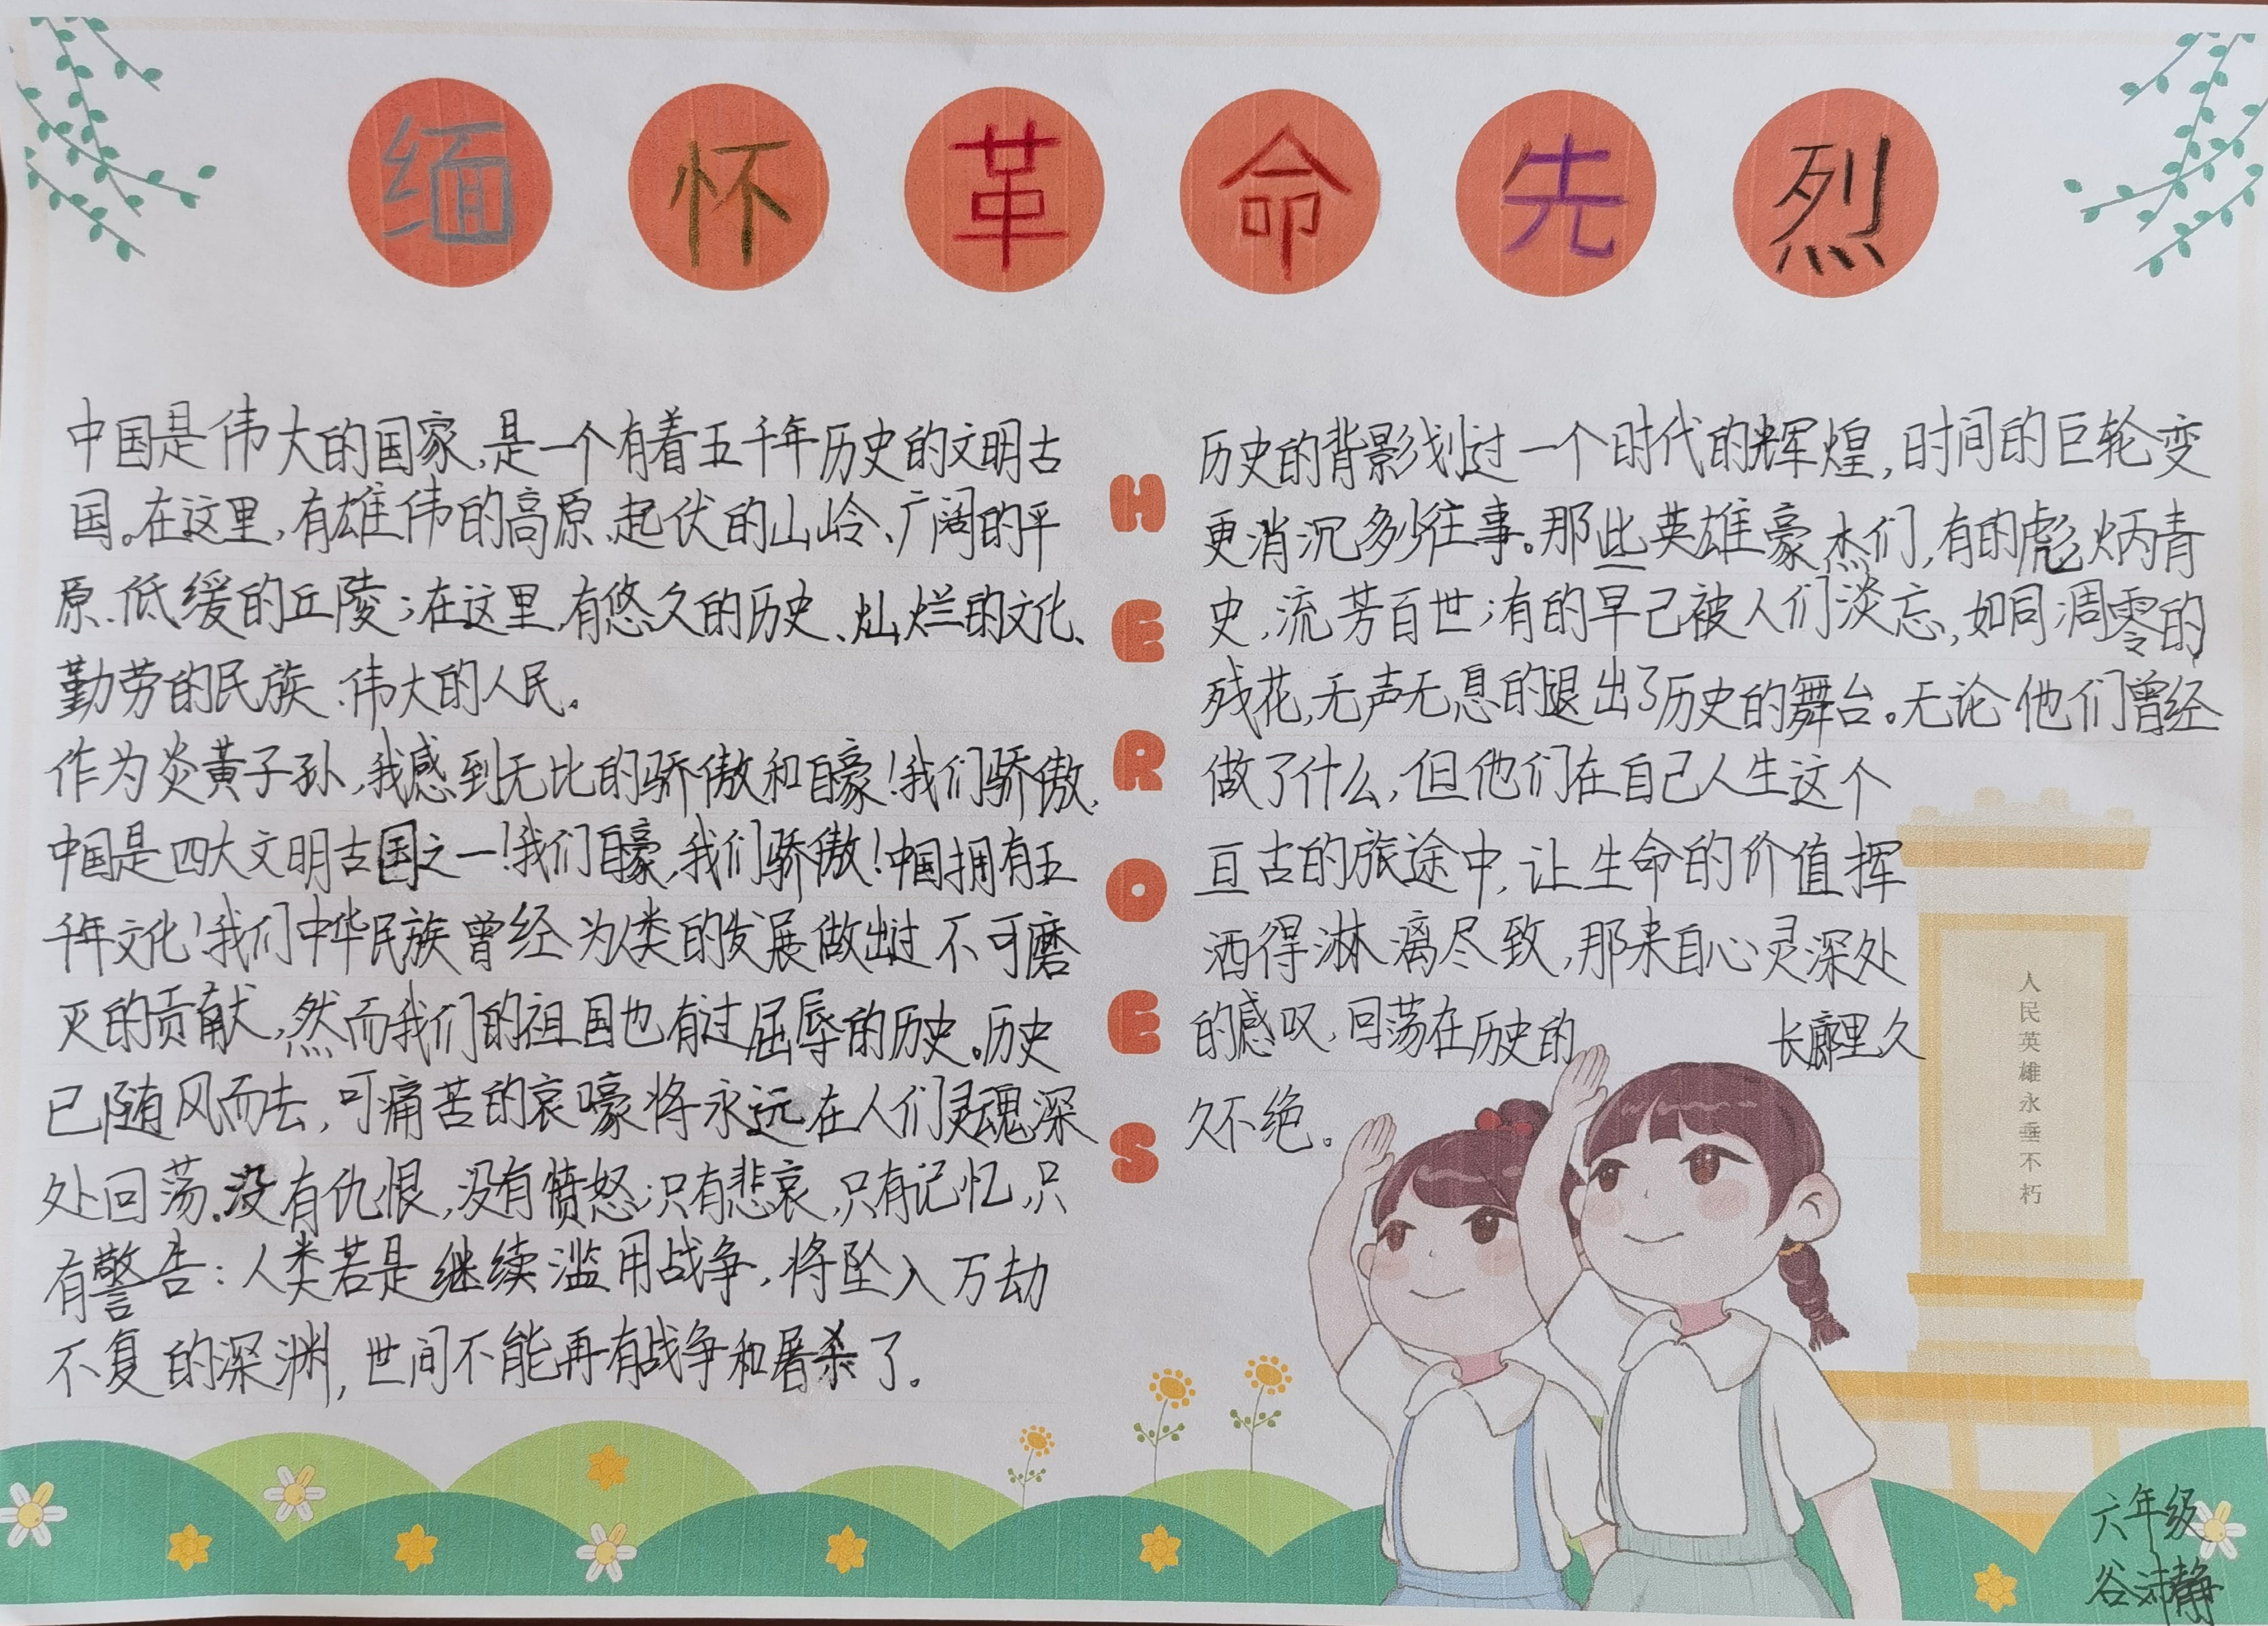 缅怀革命先烈
中国是伟大的国家,是一个有着五千年历史的文明古
国。在这里,有雄伟的高原、起伏的山岭、广阔的平
原、低缓的丘陵;在这里,有悠久的历史、灿烂的文化、
勤劳的民族、伟大的人民。
作为炎黄子孙,我感到无比的骄傲和自豪!我们骄傲,
中国是四大文明古国之一!我们自豪,我们骄傲!中国拥有五
千年文化!我们中华民族曾经为人类的发展做出过不可磨
灭的贡献,然而我们的祖国也有过屈辱的历史。历史
已随风而去,可痛苦的哀嚎将永远在人们灵魂深
处回荡。没有仇恨,没有愤怒;只有悲哀,只有记忆,只
有警告:人类若是继续滥用战争,将坠入万劫
不复的深渊,世间不能再有战争和屠杀了。
HEROES
历史的背影划过一个时代的辉煌,时间的巨轮变
更消沉多少往事。那些英雄豪杰们,有的彪炳青
史,流芳百世;有的早已被人们淡忘,如同凋零的
残花,无声无息的退出了历史的舞台。无论他们曾经
做了什么,但他们在自己人生这个
亘古的旅途中,让生命的价值挥
洒得淋漓尽致,那来自心灵深处
的感叹,回荡在历史的长廊里久
久不绝。
人民英雄永垂不朽
六年级
谷静